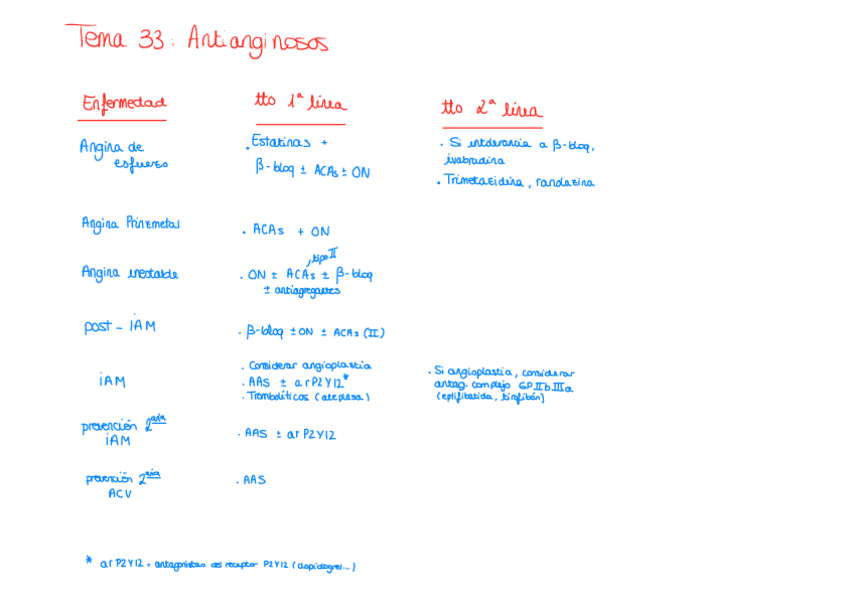 Tema 33: Antianginosos
Enfermedad tto 1ª línea tto 2ª línea
Angina de esfuerzo
. Estatinas +
β-bloq ± ACAs ± ON
. Si intolerancia a β-bloq,
ivabradina
. Trimetazidina, ranolazina
Angina Prinzmetal
. ACAs + ON
Angina inestable
, tipo II
. ON ± ACAs ± β-bloq
± antiagregantes
post-IAM
. β-bloq ± ON ± ACAs (II)
IAM
. Considerar angioplastia
. AAS ± arP2Y12*
. Trombolíticos (alteplasa)
. Si angioplastia, considerar
antag. complejo GPIIbIIIa
(eptifibatida, tirofibán)
prevención 2aria
IAM
. AAS ± arP2Y12
prevención 2aria
ACV
. AAS
* arP2Y12 = antagonistas del receptor P2Y12 (clopidogrel...)